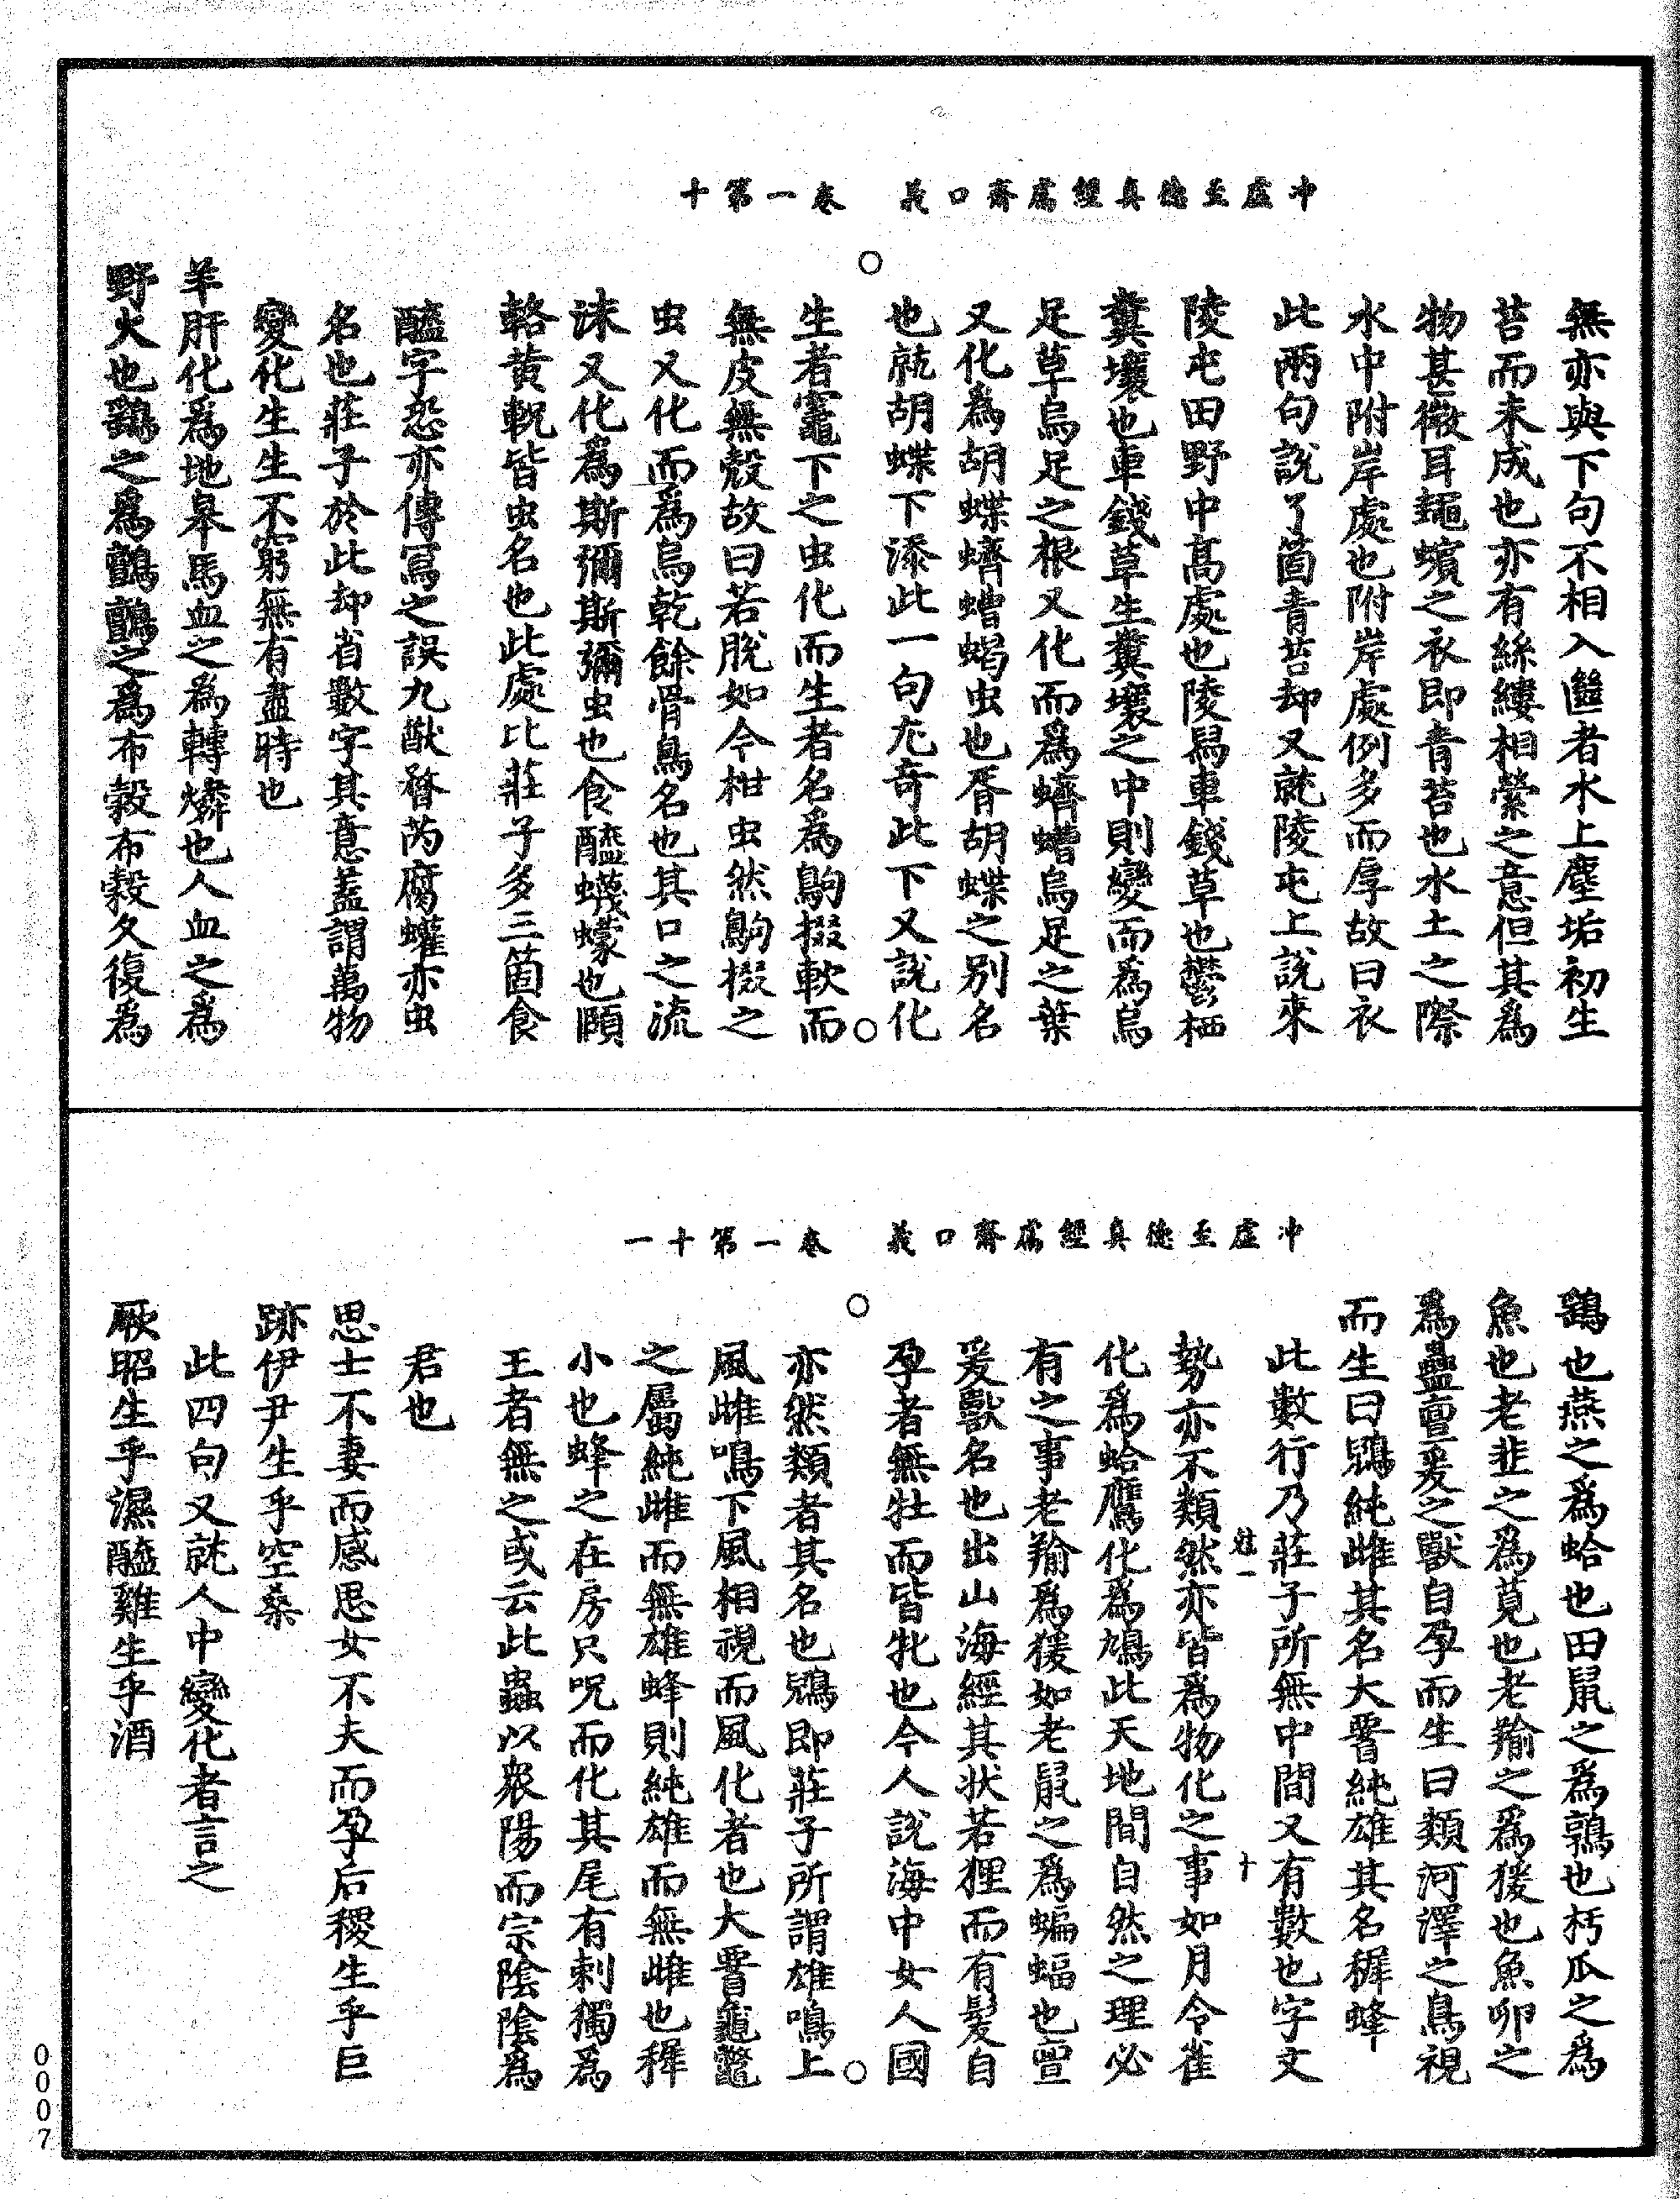 冲虛至德真經鬳齋口義　卷一第十
無亦與下句不相入㡭者水上塵垢初生
苔而未成也亦有絲縷相縈之意但其為
物甚微耳鼃蠙之衣即青苔也水土之際
水中附岸處也附岸處例多而厚故曰衣
此兩句說了箇青苔却又就陵屯上說來
陵屯田野中高處也陵舄車錢草也鬱栖
糞壤也車錢草生糞壤之中則變而為烏
足草烏足之根又化而為蠐螬烏足之葉
又化為胡蝶蠐螬蝎虫也胥胡蝶之別名
也就胡蝶下添此一句尤奇此下又說化
生者竈下之虫化而生者名為鴝掇軟而
無皮無殼故曰若脫如今柑虫然鴝掇之
虫又化而為鳥乾餘骨鳥名也其口之流
沫又化為斯彌斯彌虫也食醯蠛蠓也頤
輅黃軦皆虫名也此處比莊子多三箇食
醯字恐亦傳寫之誤九猷瞀芮腐蠸亦虫
名也莊子於此却省數字其意蓋謂萬物
變化生生不窮無有盡時也
羊肝化為地皋馬血之為轉燐也人血之為
野火也鷂之為鸇鸇之為布穀布穀久復為
冲虛至德真經鬳齋口義　卷一第十一
鷂也燕之為蛤也田鼠之為鶉也朽瓜之為
魚也老韭之為莧也老羭之為猨也魚卵之
為蟲亶爰之獸自孕而生曰類河澤之鳥視
而生曰鶂純雌其名大䏽純雄其名稺蜂
此數行乃莊子所無中間又有數也字文
勢亦不類然亦皆為物化之事如月令雀
化為蛤鷹化為鳩此天地間自然之理必
有之事老羭為猨如老鼠之為蝙蝠也亶
爰獸名也出山海經其狀若狸而有髮自
孕者無牡而皆牝也今人說海中女人國
亦然類者其名也鶂即莊子所謂雄鳴上
風雌鳴下風相視而風化者也大䏽龜鼈
之屬純雌而無雄蜂則純雄而無雌也稺
小也蜂之在房只呪而化其尾有刺獨為
王者無之或云此蟲以衆陽而宗陰陰為
君也
思士不妻而感思女不夫而孕后稷生乎巨
跡伊尹生乎空桑
此四句又就人中變化者言之
厥昭生乎濕醯雞生乎酒
0007